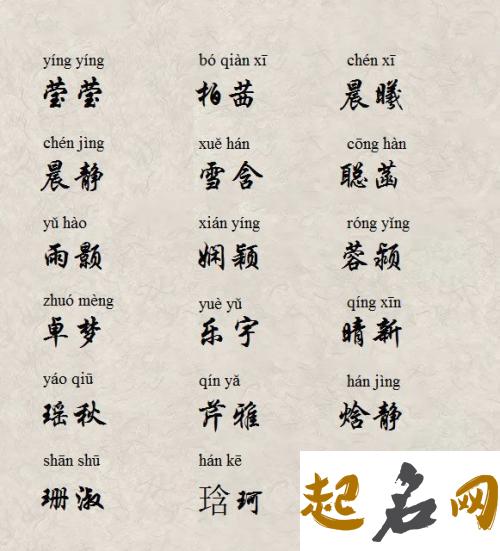 yíng yíng bó qiàn xī chén xī
莹莹 柏茜 晨曦
chén jìng xuě hán cōng hàn
晨静 雪含 聪菡
yǔ hào xián yíng róng yǐng
雨颢 娴颖 蓉颍
zhuó mèng yuè yǔ qíng xīn
卓梦 乐宇 晴新
yáo qiū qín yǎ hán jìng
瑶秋 芹雅 焓静
shān shū hán kē
珊淑 琀珂
起名网